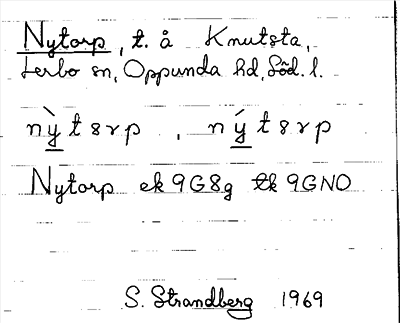 Nytorp, t. å Knutsta,
Lerbo sn, Oppunda hd, Söd. l.
nỳt8rp, nýt8rp
Nytorp ek 9G8g tk 9GNO
S. Strandberg 1969